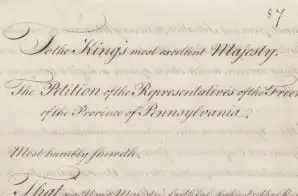 87
To the King's most excellent Majesty.
The Petition of the Representatives of the Free
of the Province of Pennsylvania,
Most humbly sheweth.
That